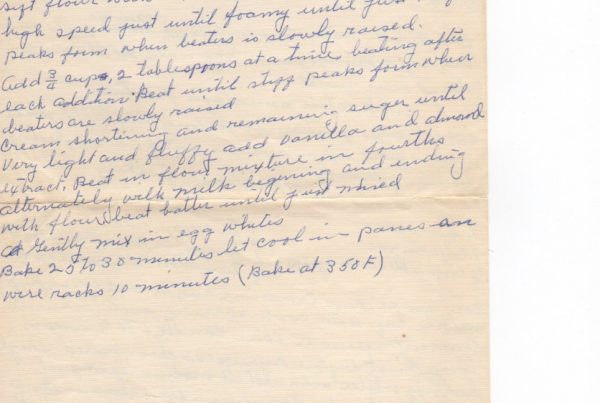 sift flour
high speed just until foamy until
peaks form when beaters is slowly raised.
Add 3/4 cups, 2 tablespoons at a time, beating after
each addition. Beat until stiff peaks form when
beaters are slowly raised
Cream shortening and remaining suger until
very light and fluffy add vanilla and almond
extract. Beat in flour mixture in fourths
alternately with milk begining and ending
with flour, beat batter until just mixed
Gently mix in egg whites
Bake 25 to 30 minutes let cool in panes on
wire racks 10 minutes (Bake at 350F)